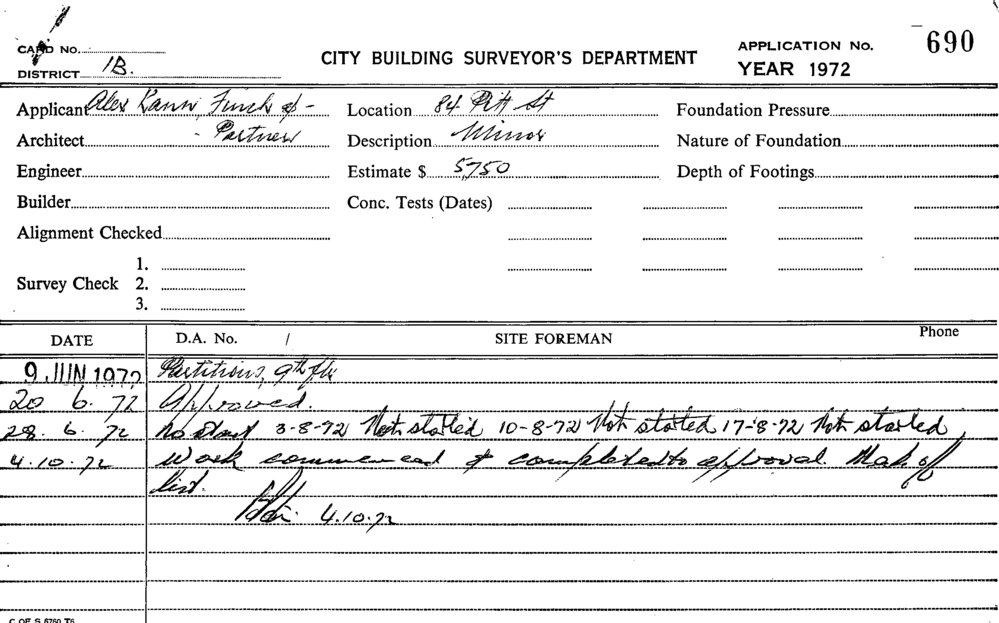 CARD NO.
CITY BUILDING SURVEYOR'S DEPARTMENT
APPLICATION No. 690
DISTRICT 1B.
YEAR 1972
Applicant Alex Kann, Finch & -
Location 84 Pitt St
Foundation Pressure
Architect - Partners
Description Minor
Nature of Foundation
Engineer
Estimate $ 5,750
Depth of Footings
Builder
Conc. Tests (Dates)
Alignment Checked
1.
Survey Check 2.
3.
DATE D.A. No. / SITE FOREMAN Phone
9 JUN 1972 Partitions, 9th flr
20 6. 72 Approved.
28. 6. 72 No start 3-8-72 Not started 10-8-72 Not started 17-8-72 Not started
4.10.72 Work commenced & completed to approval. Mark off
list.
4.10.72
C OF S 5760 T5